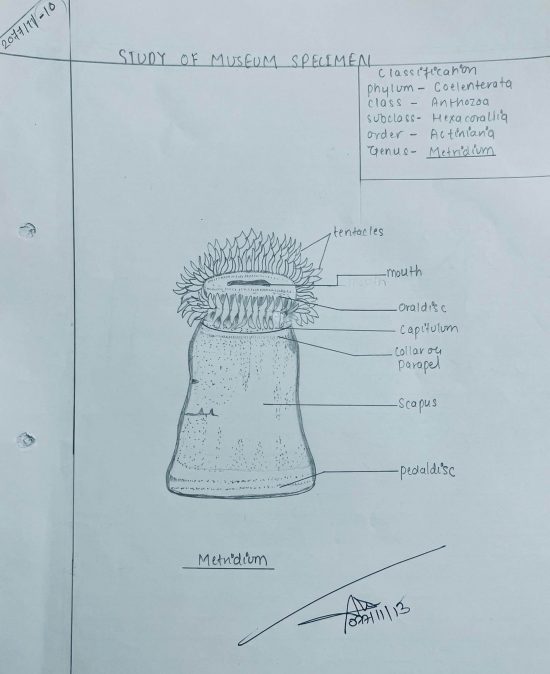 2077/11/10
STUDY OF MUSEUM SPECIMEN
Classification
phylum - Coelenterata
class - Anthozoa
subclass - Hexacorallia
order - Actiniaria
Genus - Metridium
tentacles
mouth
oraldisc
Capitulum
Collar or
parapel
Scapus
pedaldisc
Metridium